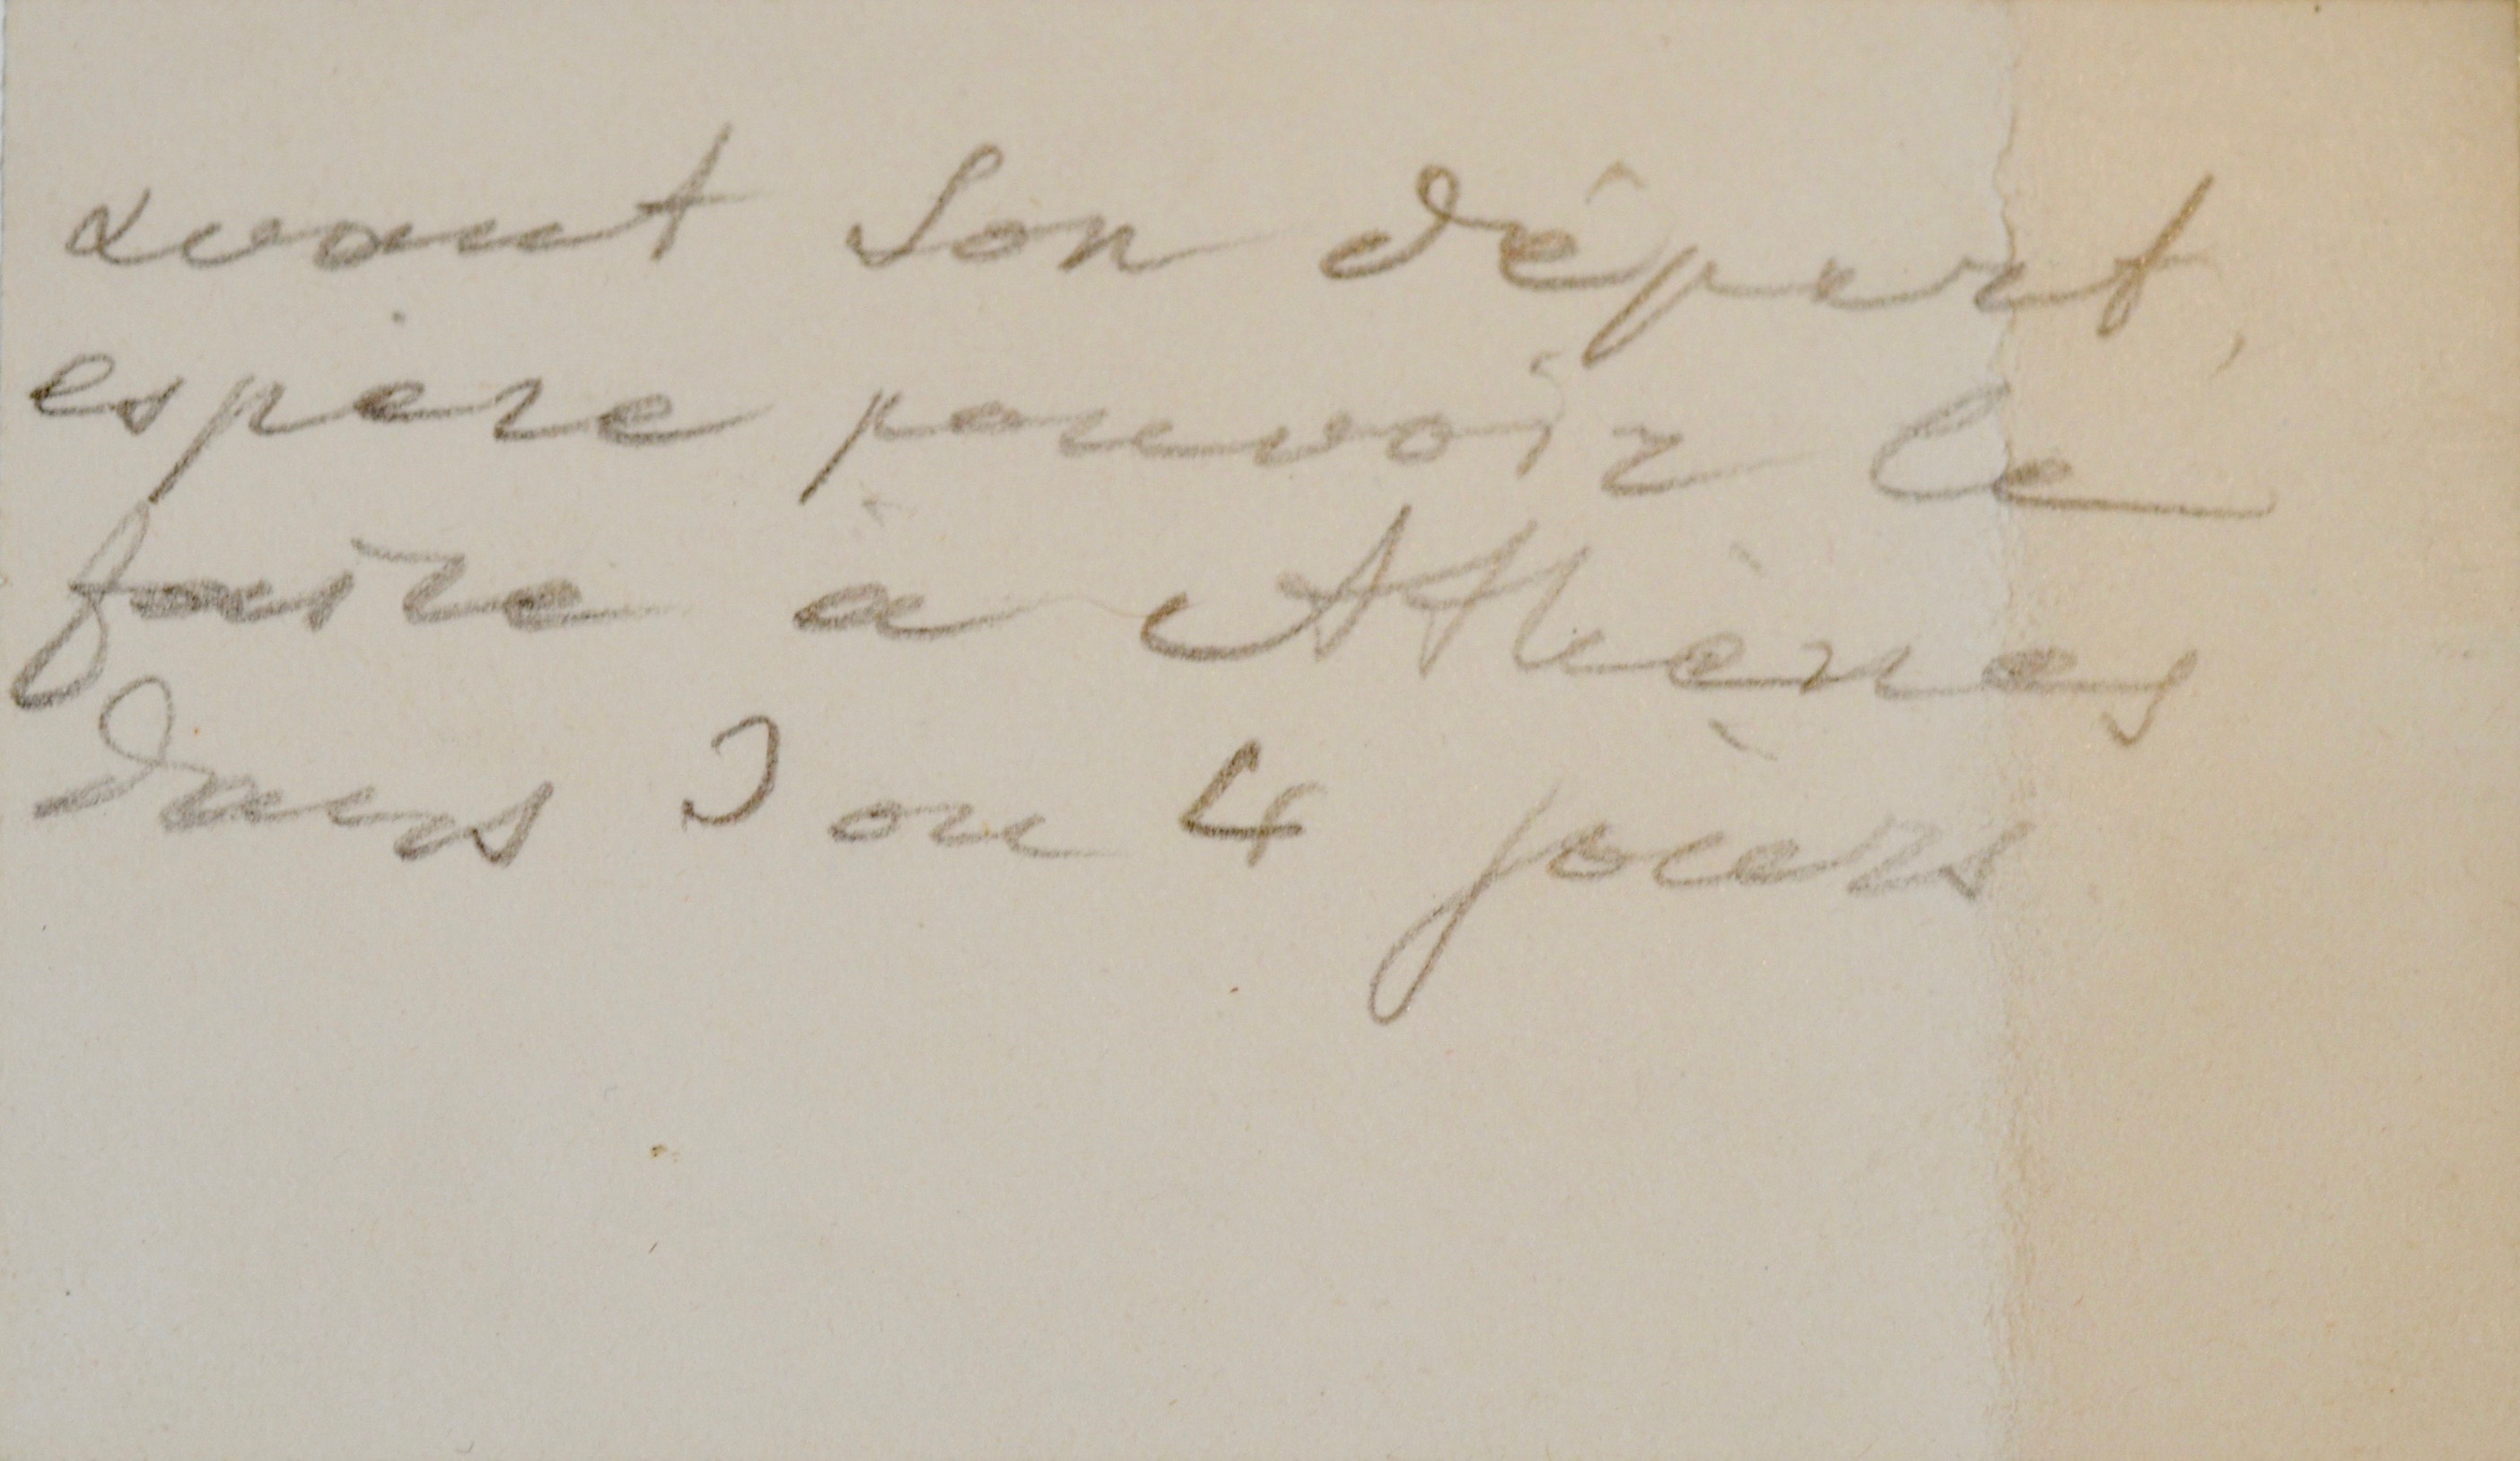 avant son départ,
espère pouvoir le
faire à Athènes
dans 3 ou 4 jours